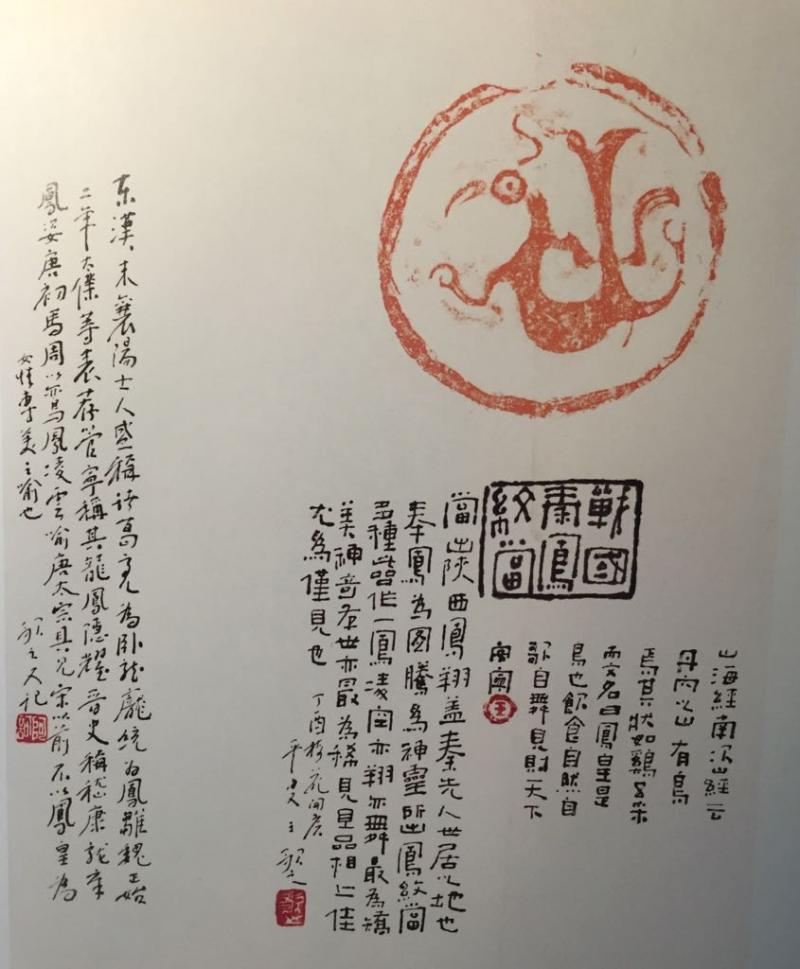 戰國
秦鳳
紋當
山海經南次山經云
丹穴之山有鳥
焉其狀如鷄五采
而文名曰鳳皇是
鳥也飲食自然自
歌自舞見則天下
安寧
當出陝西鳳翔蓋秦先人世居之地也
奉鳳為圖騰為神靈所出鳳紋當
多種此器作一鳳凌空亦翔亦舞最為矯
美神奇存世亦最為稀見且品相上佳
尤為僅見也 丁酉梅花開
東漢末襄陽士人盛稱諸葛亮為卧龍龐統為鳳雛魏正始
二年太僕等表荐管寧稱其龍鳳隱耀晉史稱嵇康龍章
鳳姿唐初馬周以鸞鳳凌雲喻唐太宗具見宋以前不以鳳皇為
女性專美之喻也
又記